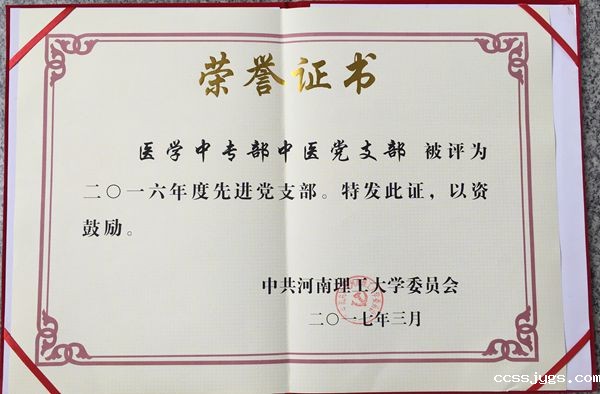 荣誉证书
医学中专部中医党支部 被评为
二〇一六年度先进党支部。特发此证，以资
鼓励。
中共河南理工大学委员会
二〇一七年三月
ccssjygs.com